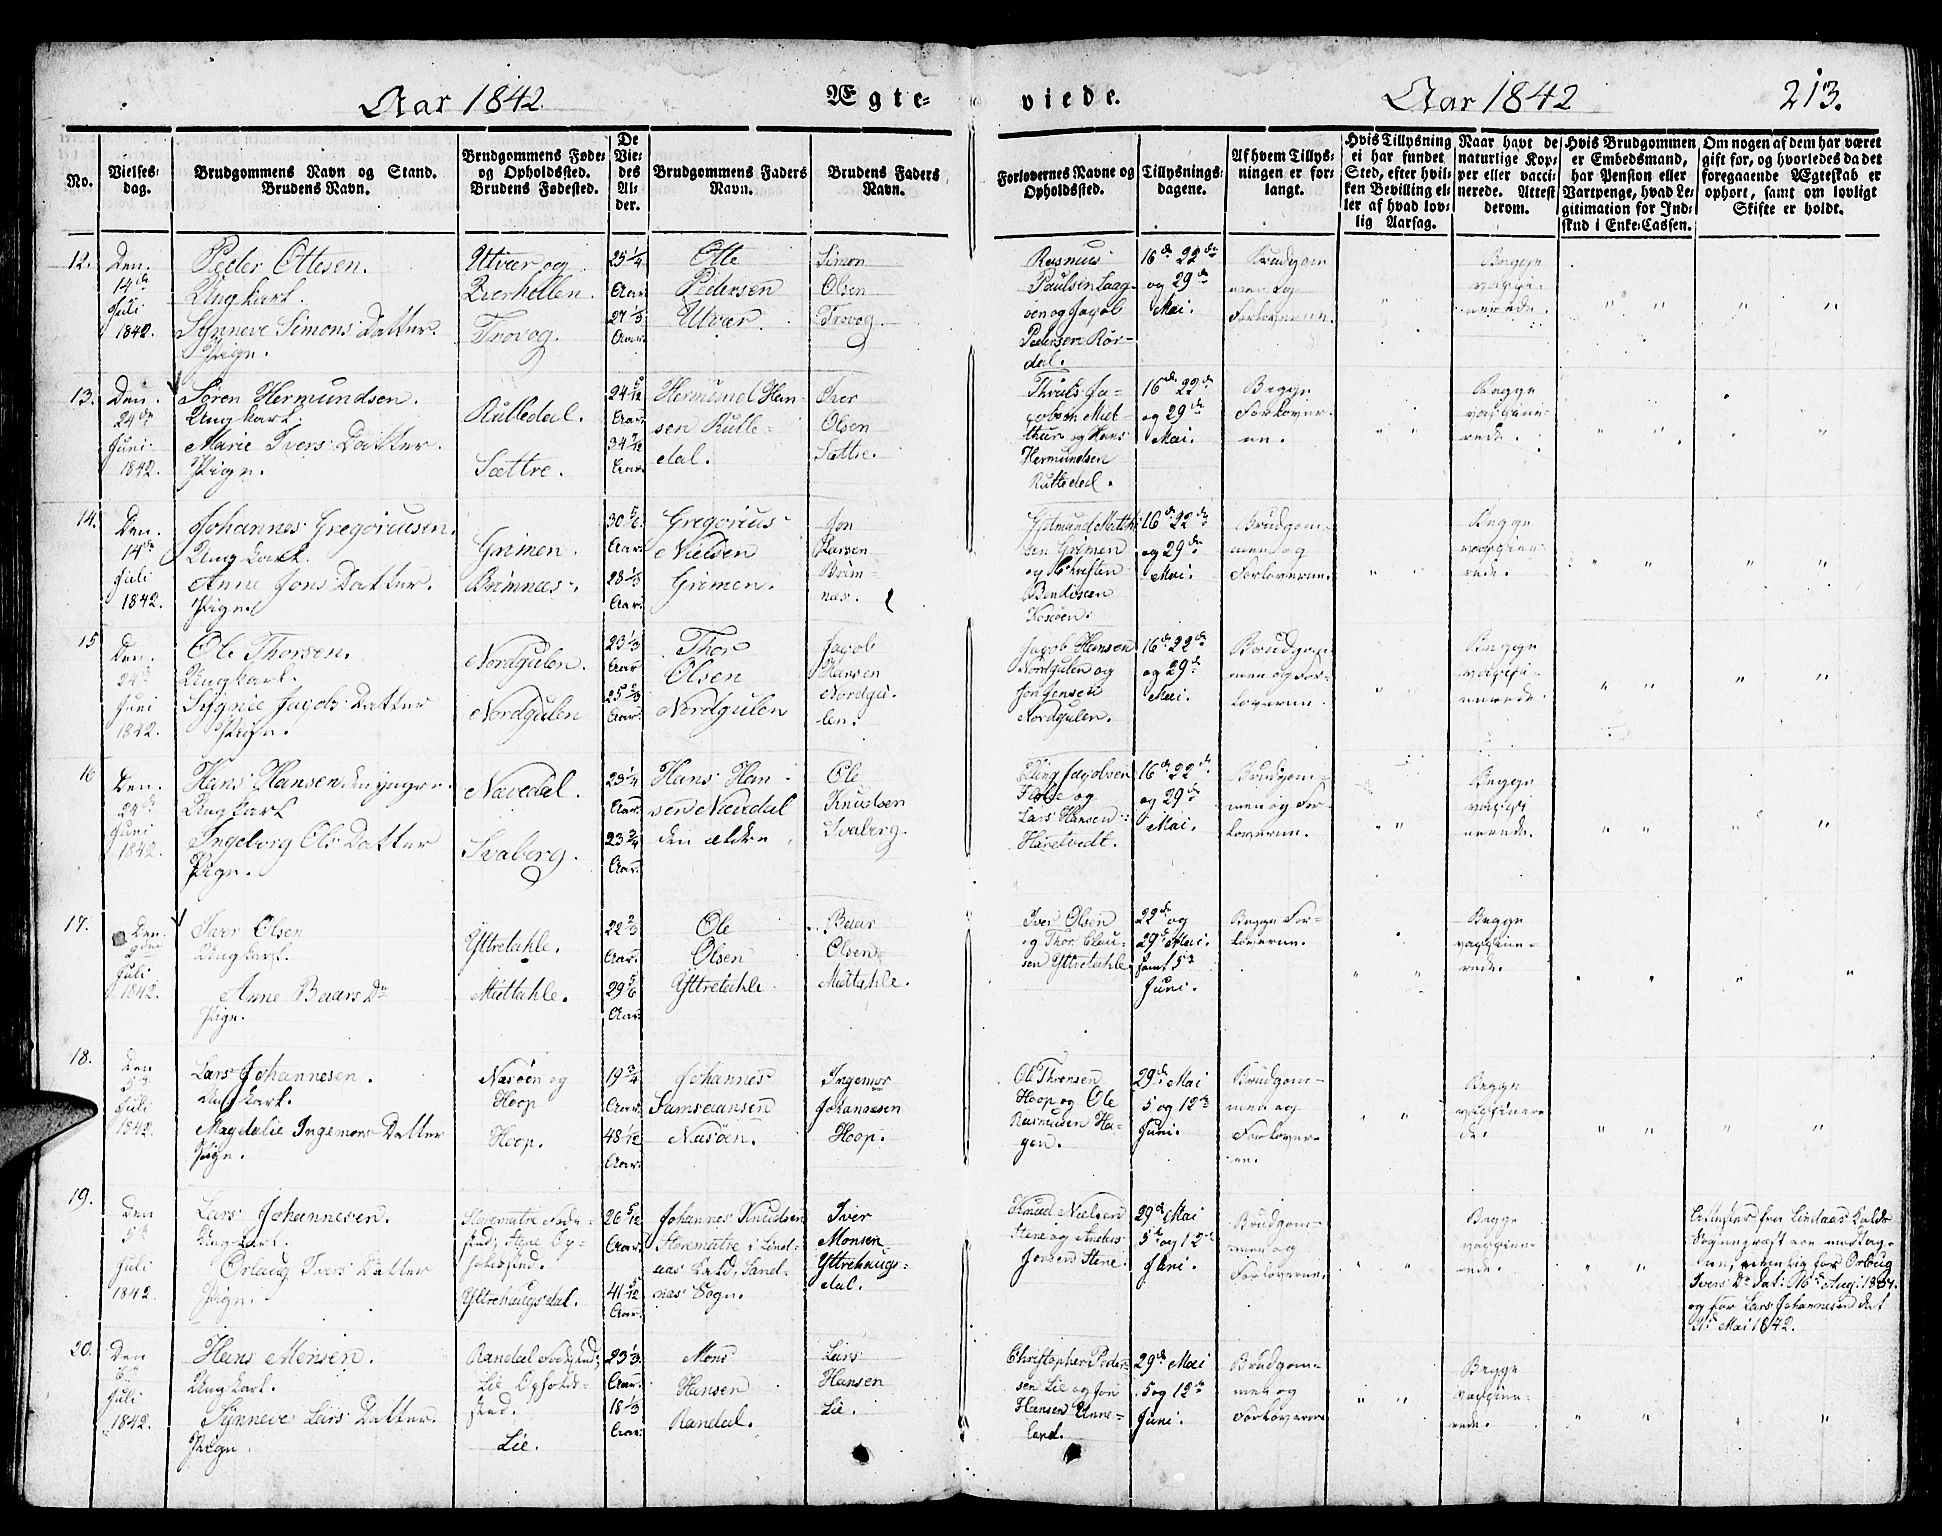 Aar 1842
Ægte-
viede.
Aar 1842
213.
No.
Vielses-
dag.
Brudgommens Navn og Stand.
Brudens Navn.
Brudgommens Føde-
og Opholdssted.
Brudens Fødested.
De
Vie-
des
Al-
der.
Brudgommens Faders
Navn.
Brudens Faders
Navn.
Forlovernes Navne og
Opholdssted.
Tillysnings-
dagene.
Af hvem Tillys-
ningen er for-
langt.
Hvis Tillysning
ei har fundet
Sted, efter hvil-
ken Bevilling el-
ler af hvad lov-
lig Aarsag.
Naar havt de
naturlige Kop-
per eller vacci-
nerede. Attest
derom.
Hvis Brudgommen
er Embedsmand,
har Pension eller
Vartpenge, hvad Le-
gitimation for Ind-
skud i Enke-Cassen.
Om nogen af dem har været
gift før, og hvorledes da det
foregaaende Ægteskab er
ophørt, samt om lovligt
Skifte er holdt.
12.
Den
14de
Juli
1842.
Peder Ottesen.
Ungkarl.
Synneve Simons Datter.
Pige.
Utvær og
Trovog.
25 1/4
Aar.
27 1/3
Aar.
Otte
Pedersen
Utvær.
Simon
Olsen
Trovog
Rasmus
og Jacob
Pedersen Rør-
dal.
16de 22de
og 29de
Mai.
Brudgom-
men og
Forloverne.
Begge
vacci-
nerede.
13.
Den
24de
Juni
1842.
Søren Hermundsen.
Ungkarl.
Marie Ivers Datter.
Pige.
Rutledal.
Sættre.
24 5/12
Aar.
Aar.
Hermund Han-
sen Rutle-
dal.
Iver
Olsen
Sættre.
og Hans
Hermundsen
Rutledal.
16de 22de
og 29de
Mai.
Begge
Forlover-
ne.
Begge
vaccine-
rede.
14.
Den
14de
Juli
1842.
Johannes Gregoriusen.
Ungkarl.
Anne Jons Datter.
Pige.
Grimen.
Brimnæs.
30 5/6
Aar.
28 1/3
Aar.
Gregorius
Nielsen
Grimen.
Jon
Larsen
Brim-
næs.
sen Grimen
og Christen
Bendixen
16de 22de
og 29de
Mai.
Brudgom-
men og
Forloverne.
Begge
vaccine-
rede.
15
Den
24de
Juni
1842.
Ole Thorsen.
Ungkarl.
Sygnie Jacobs Datter
Pige.
Nordgulen.
Nordgulen
23 1/3
Aar
25 2/3
Aar.
Thor
Olsen
Nordgulen
Jacob
Hansen
Nordgu-
len.
Jacob Hansen
Nordgulen og
Jon Jensen
Nordgulen.
16de 22de
og 29de
Mai.
Brudgom-
men og For-
loverne.
Begge
vacci-
nerede.
16
Den
24de
Juni
1842.
Hans Hansen den yngre.
Ungkarl
Ingeborg Ols Datter
Pige.
Nævedal.
Svaberg.
23 1/4
Aar.
23 3/4
Aar.
Hans Han-
sen Nævedal
den ældre
Ole
Knudsen
Svaberg.
Elling Jacobsen
Flolie og
Lars Hansen
Hantvedt.
16de 22de
og 29de
Mai.
Brudgom-
men og For-
loverne.
Begge
vacci-
nerede.
17.
Den
Juli
1842.
Iver Olsen
Ungkarl.
Anne Baars Dtr
Pige.
Yttretahle.
Midtahle.
22 2/3
Aar.
29 5/6
Aar.
Ole
Olsen
Yttretahle
Baar
Olsen
Midtahle.
Iver Olsen
og Thor Clau-
sen Yttretahle
22de og
29de Mai.
samt 5te
Juni.
Begge For-
loverne.
Begge
vaccine-
rede.
18.
Den
5te
Juli
1842.
Lars Johannesen.
Ungkarl.
Magdelie Ingemors Datter
Pige.
Nasøen og
Hoop
Hoop.
19 3/4
Aar.
48 1/12
Aar.
Johannes
Nasøen.
Ingemor
Johannesen
Hoop.
Hoop og Ole
Rasmusen Ha-
gen.
29de Mai
5 og 12te
Juni.
Brudgom-
men og
Forlover-
ne.
Begge
vaccinere-
de.
19.
Den
5te
Juli
1842.
Lars Johannesen.
Ungkarl.
Ivers Datter
Pige.
Storematre Føde-
sted, Stene Op-
holdssted.
Yttrehaugsdal.
26 5/12
Aar.
41 5/12
Aar.
Johannes Knudsen
Storematre i Lind-
aas Præstgjeld, Sand-
næs Sogn.
Iver
Monsen
Yttrehaugs-
dal.
Knud Nielsen
Stene og Anders
Jensen Stene.
29de Mai
5te og 12te
Juni.
Brudgom-
men og
Forloverne.
Begge
vaccine-
rede.
Attester fra Lindaas
og for Lars Johannesen dat
Mai 1842.
20.
Den
Juli
1842.
Hans Monsen.
Ungkarl.
Synneve Lars Datter.
Pige
Randal Fødested;
Lie Opholds-
sted.
Lie.
23 1/3
Aar.
18 1/3
Aar.
Mons
Hansen
Randal.
Lars
Hansen
Lie.
Christopher Peder-
sen Lie og Jon
Hansen Unne-
land.
29de Mai
5 og 12te
Juni.
Brudgom-
men og
Forloverne
Begge
vaccine-
rede.